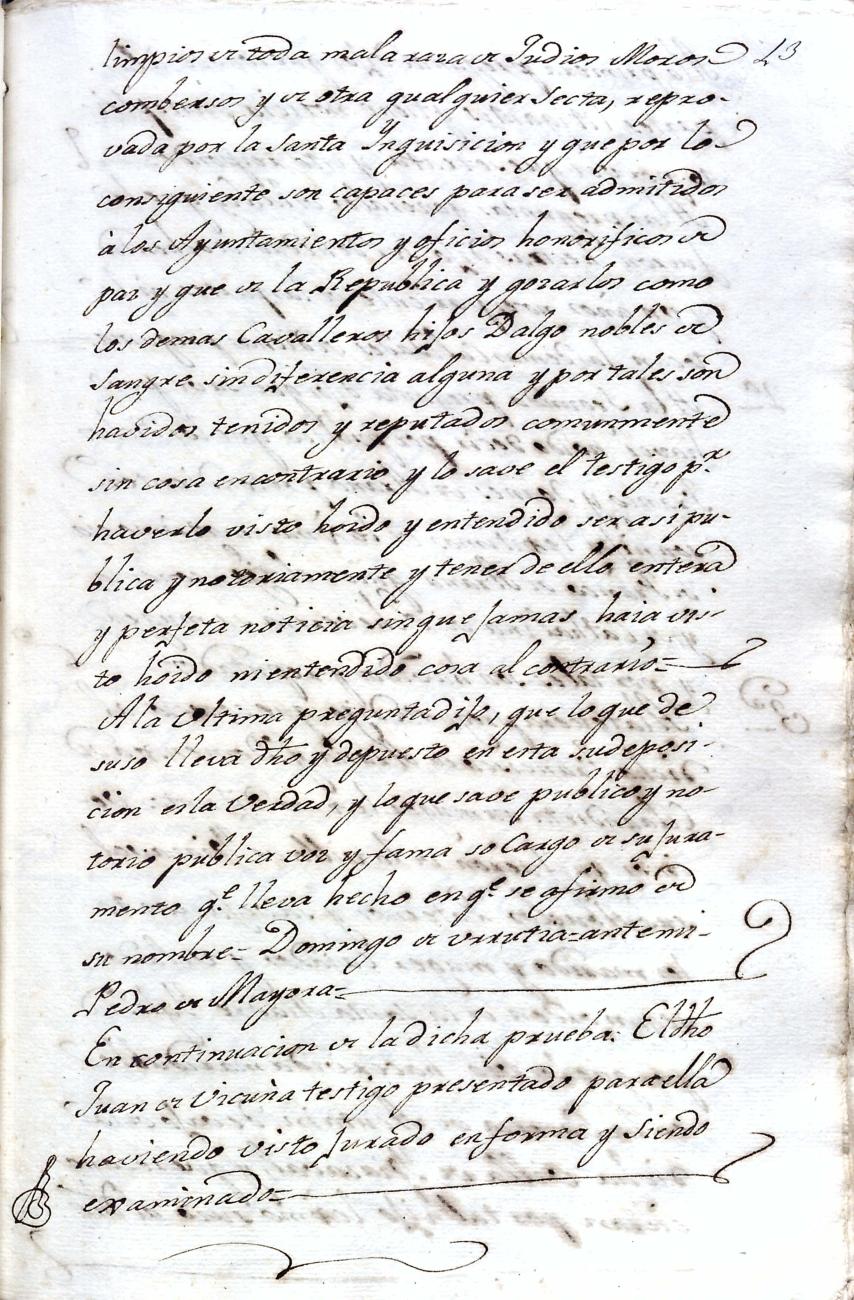 limpios de toda mala raza de Judios Moros 43
combersos y de otra qualquier secta, repro-
vada por la Santa Ynquisicion y que por lo
consiguiente son capaces para ser admitidos
à los Ayuntamientos y oficios honorificos de
paz y que de la Republica y gozarlos como
los demas Cavalleros hijos Dalgo nobles de
sangre sin diferencia alguna y por tales son
havidos tenidos y reputados comunmente
sin cosa en contrario y lo save el testigo pr.
haverlo visto hoido y entendido ser asi pu-
blica y notoriamente y tener de ello entera
y perfeta noticia sin que Jamas haia vis-
to hoido ni entendido cosa al contrario=
A la vltima pregunta dijo, que lo que de
suso lleva dho y depuesto en esta su deposi-
cion es la Verdad, y lo que save publico y no-
torio publica voz y fama so Cargo de su Jura-
mento qe. lleva hecho en qe. se afirmo de
su nombre= Domingo de vrrutia=ante mi-
Pedro de Mayora=
En continuacion de la dicha prueba: El dho
Juan de Vicuña testigo presentado para ella
haviendo visto Jurado en forma y siendo
examinado=